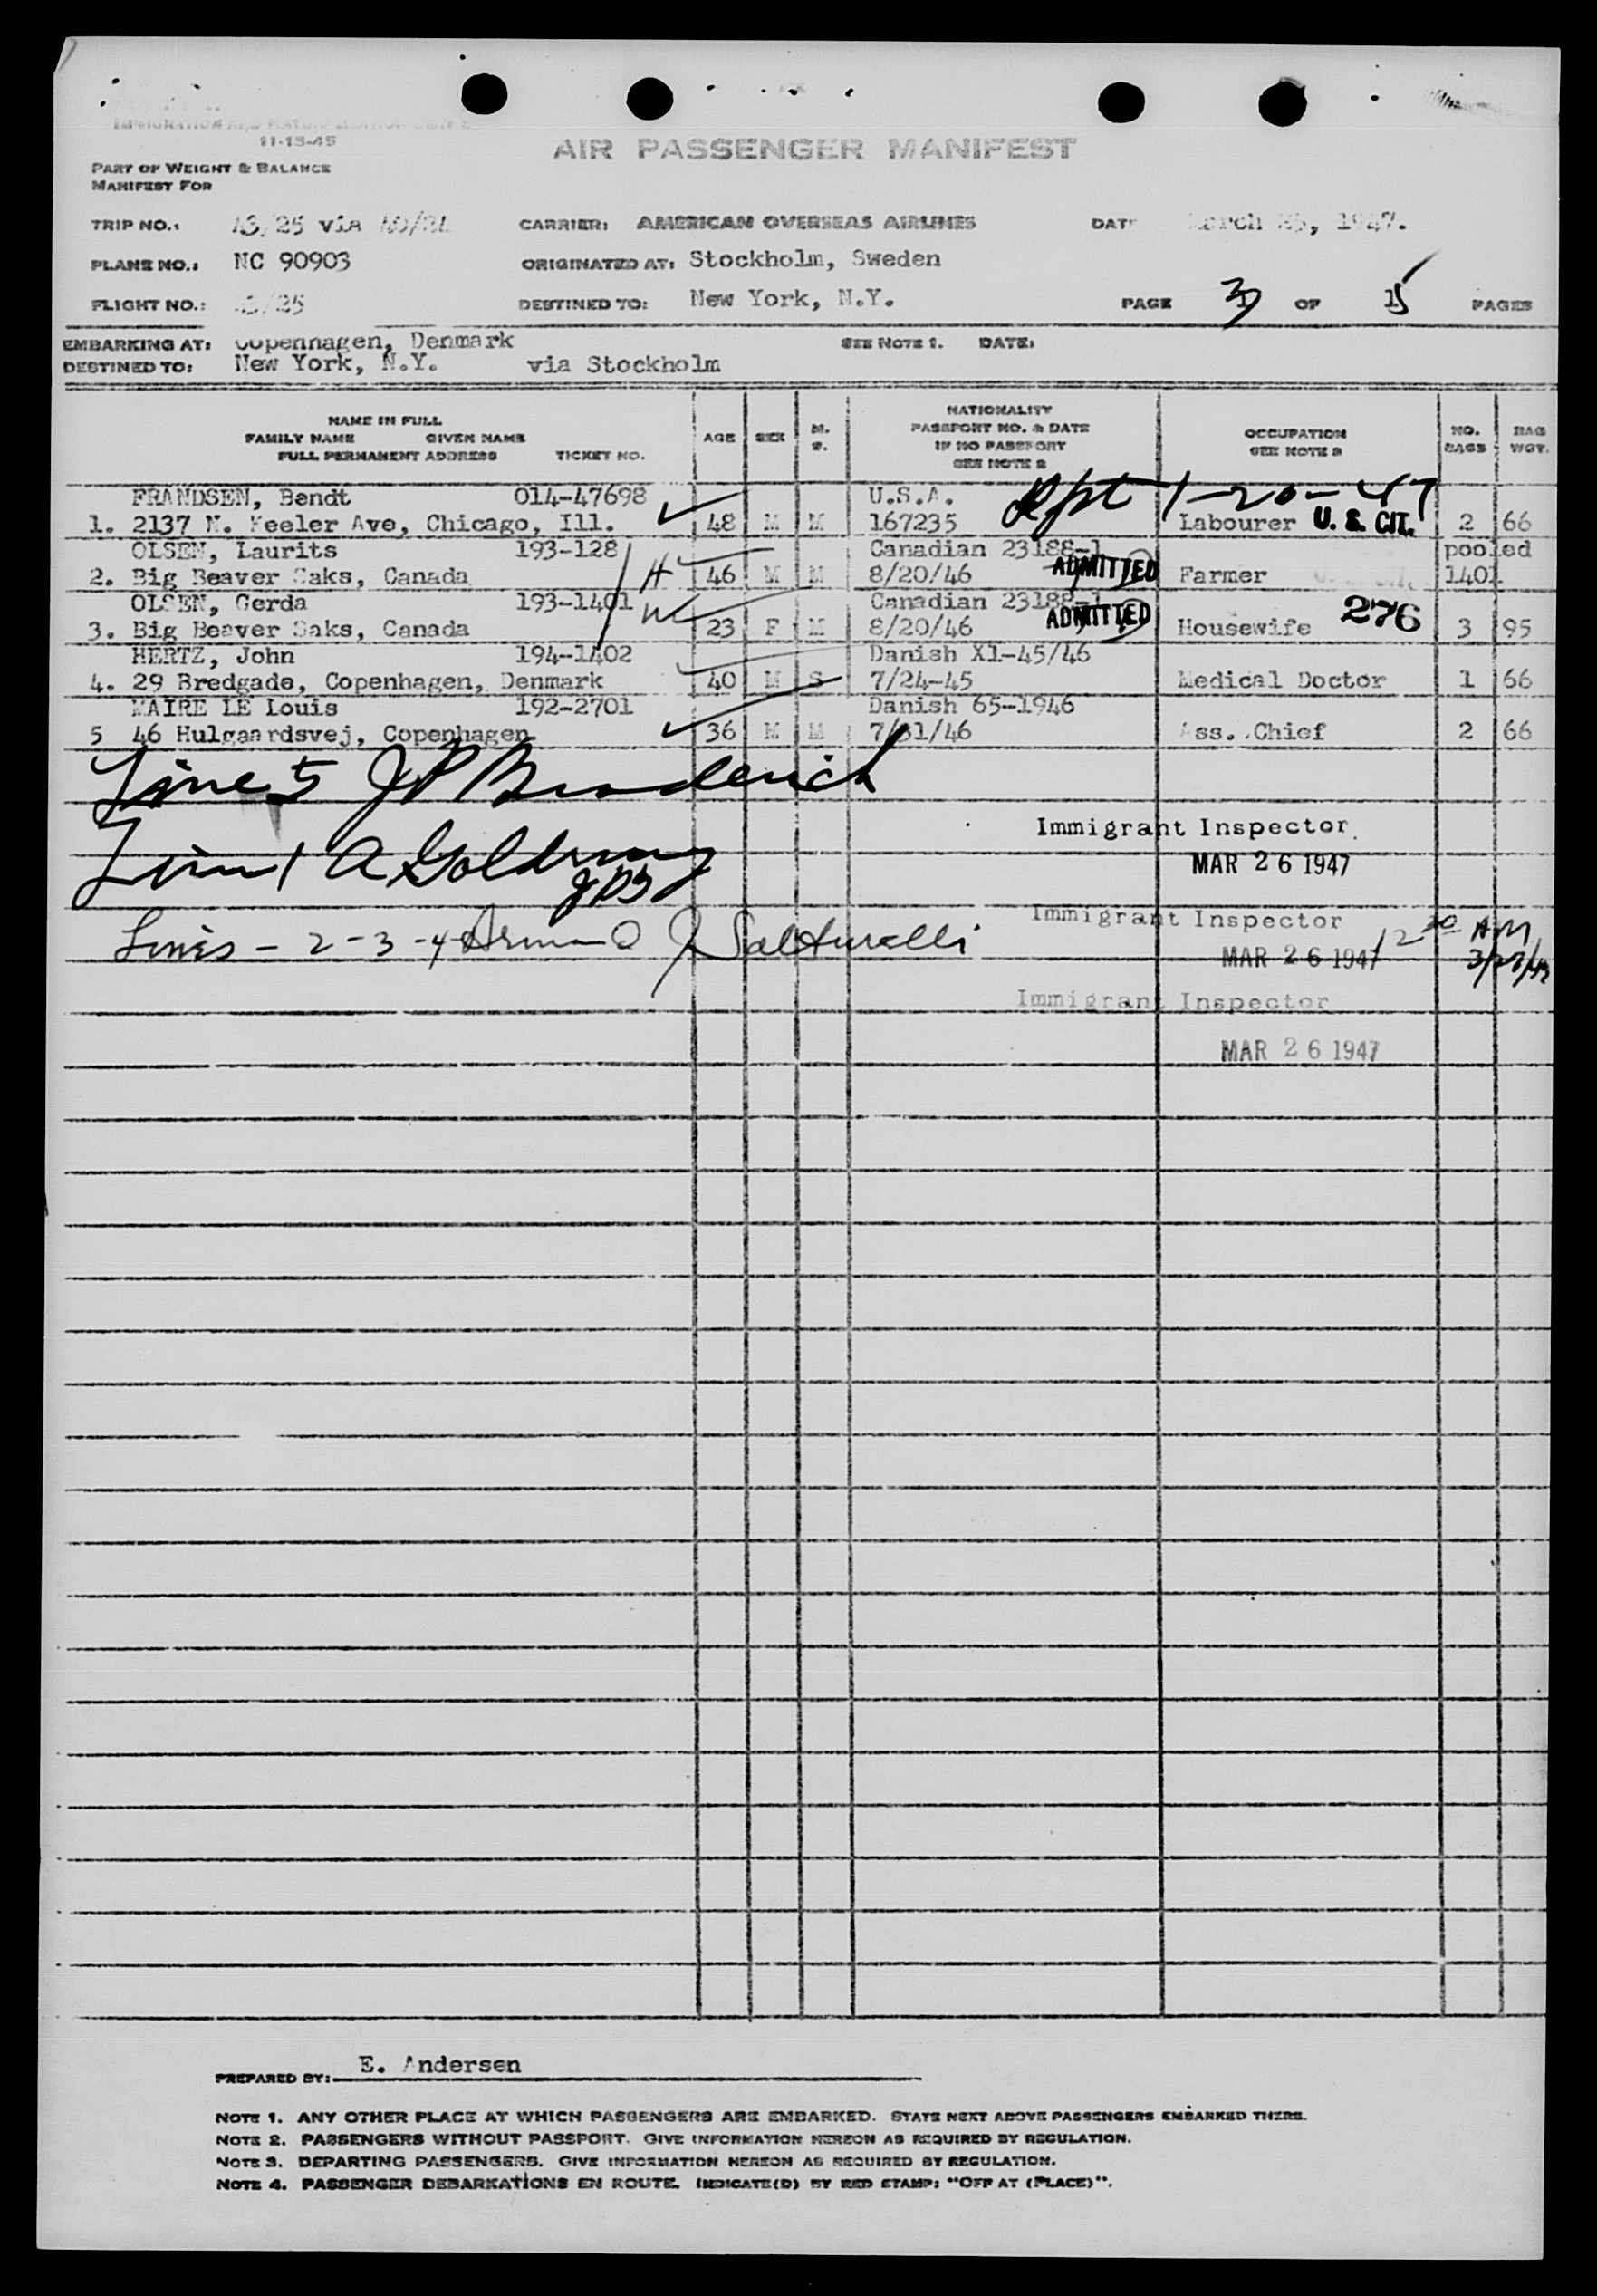 11-15-45
AIR PASSENGER MANIFEST
PART OF WEIGHT & BALANCE
MANIFEST FOR
TRIP NO.: via CARRIER: AMERICAN OVERSEAS AIRLINES DATE March 25, 1947.
PLANE NO.: NC 90903 ORIGINATED AT: Stockholm, Sweden
FLIGHT NO.: DESTINED TO: New York, N.Y. PAGE OF PAGES
EMBARKING AT: Copenhagen, Denmark SEE NOTE 1. DATE:
DESTINED TO: New York, N.Y. via Stockholm
NAME IN FULL
FAMILY NAME GIVEN NAME
FULL PERMANENT ADDRESS TICKET NO.
AGE SEX M. S.
NATIONALITY
PASSPORT NO. & DATE
IF NO PASSPORT
SEE NOTE 2
OCCUPATION
SEE NOTE 3
NO. BAGS
BAG WGT.
FRANDSEN, Bendt 014-47698 U.S.A. 1-20-47
1. 2137 N. Keeler Ave, Chicago, Ill. 48 M M 167235 Labourer U. S. CIT. 2 66
OLSEN, Laurits 193-128 Canadian 23188-1 pooled
2. Big Beaver Saks, Canada H 46 M M 8/20/46 ADMITTED Farmer 140
OLSEN, Gerda 193-1401 Canadian 23188-1
3. Big Beaver Saks, Canada W 23 F M 8/20/46 ADMITTED Housewife 276 3 95
HERTZ, John 194-1402 Danish X1-45/46
4. 29 Bredgade, Copenhagen, Denmark 40 M S 7/24-45 Medical Doctor 1 66
MAIRE LE Louis 192-2701 Danish 65-1946
5 46 Hulgaardsvej, Copenhagen 36 M M 7/31/46 Ass. Chief 2 66
Line 5 J P Broderick
Immigrant Inspector
Line 1 A
MAR 26 1947
Immigrant Inspector
Lines - 2-3-4 12 30 AM
MAR 26 1947
Immigrant Inspector
MAR 26 1947
PREPARED BY: E. Andersen
NOTE 1. ANY OTHER PLACE AT WHICH PASSENGERS ARE EMBARKED. STATE NEXT ABOVE PASSENGERS EMBARKED THERE.
NOTE 2. PASSENGERS WITHOUT PASSPORT. GIVE INFORMATION HEREON AS REQUIRED BY REGULATION.
NOTE 3. DEPARTING PASSENGERS. GIVE INFORMATION HEREON AS REQUIRED BY REGULATION.
NOTE 4. PASSENGER DEBARKATIONS EN ROUTE. INDICATE(D) BY RED STAMP: "OFF AT (PLACE)".